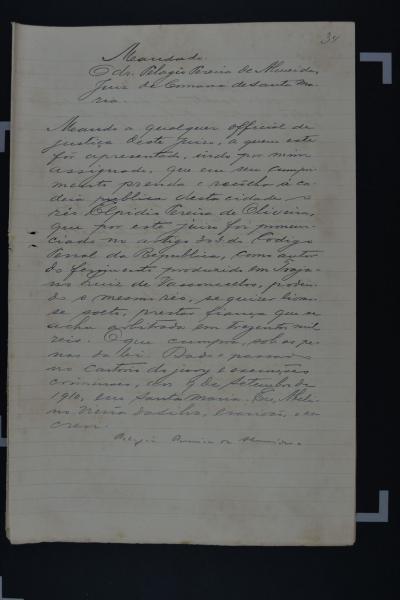 34
Mandado.
O dr. Pelagio Pereira de Almeida,
Juiz de Comarca de Santa Ma-
ria.
Mando a qualquer official de
justiça deste Juizo, a quem este
fôr apresentado, indo por mim
assignado, que em seu cumpri-
mento prenda e recolha á ca-
deia publica desta cidade o
réo Elpidio Pereira de Oliveira,
que por este juizo foi pronun-
ciado no artigo 303 do Codigo
Penal da Republica, como autor
do ferimento produzido em Traja-
no Luiz de Vasconcellos, poden-
do o mesmo réo, se quizer livrar-
se solto, prestar fiança que se
acha arbitrada em trezentos mil
réis. O que cumpra, sob as pe-
nas da lei. Dado e passado
no cartorio do jury e execuções
criminaes, aos 9 de Setembro de
1910, em Santa Maria. Eu,
da Silva, escrivão, o es-
crevi.
Pelagio Pereira de Almeida